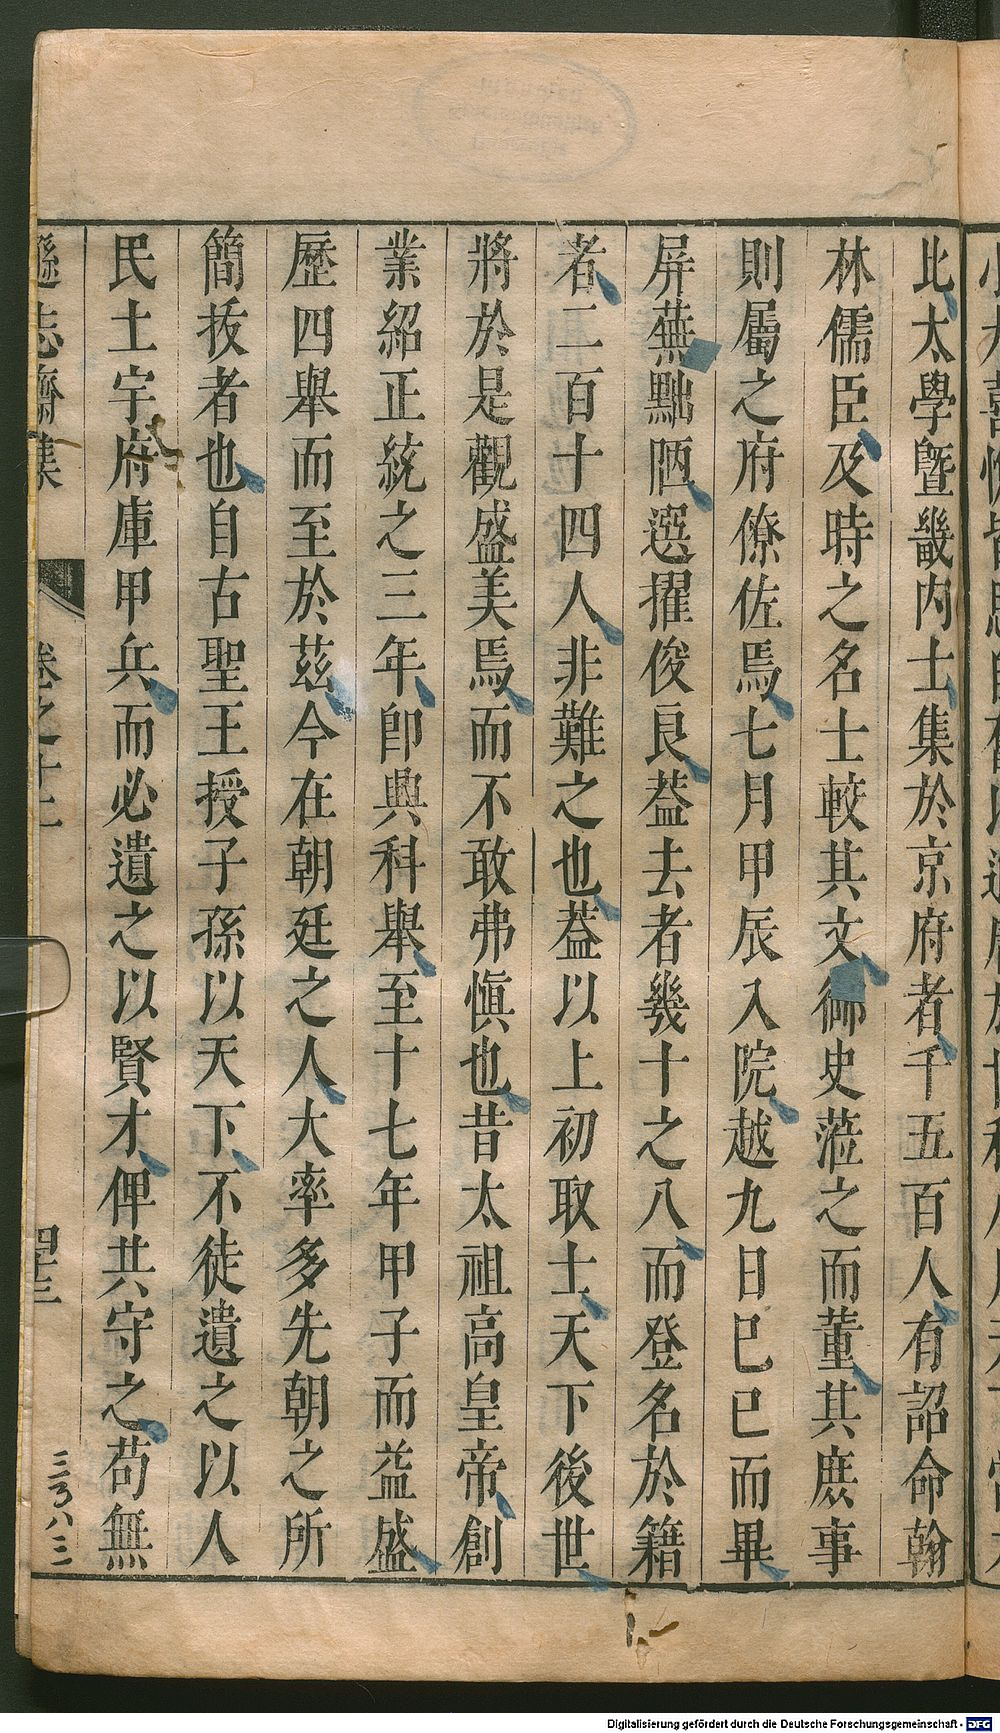 比太學曁畿内士集於京府者千五百人有詔命翰
林儒臣及時之名士較其文御史蒞之而董其庶事
則屬之府僚佐焉七月甲辰入院越九日巳巳而畢
屏蕪黜陋選擢俊良葢去者幾十之八而登名於籍
者二百十四人非難之也葢以上初取士天下後世
將於是觀盛美焉而不敢弗愼也昔太祖高皇帝創
業紹正統之三年卽興科舉至十七年甲子而益盛
歷四舉而至於茲今在朝廷之人大率多先朝之所
簡拔者也自古聖王授子孫以天下不徒遺之以人
民土宇府庫甲兵而必遺之以賢才俾共守之苟無
遜志齋集
卷之十二
四十三
三百八三
Digitalisierung gefördert durch die Deutsche Forschungsgemeinschaft - DFG